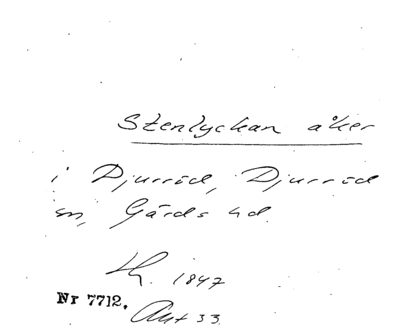 Stenlyckan åker
i Djurröd, Djurröd
sn, Gärds hd.
1847
Nr 7712.
Akt 33.